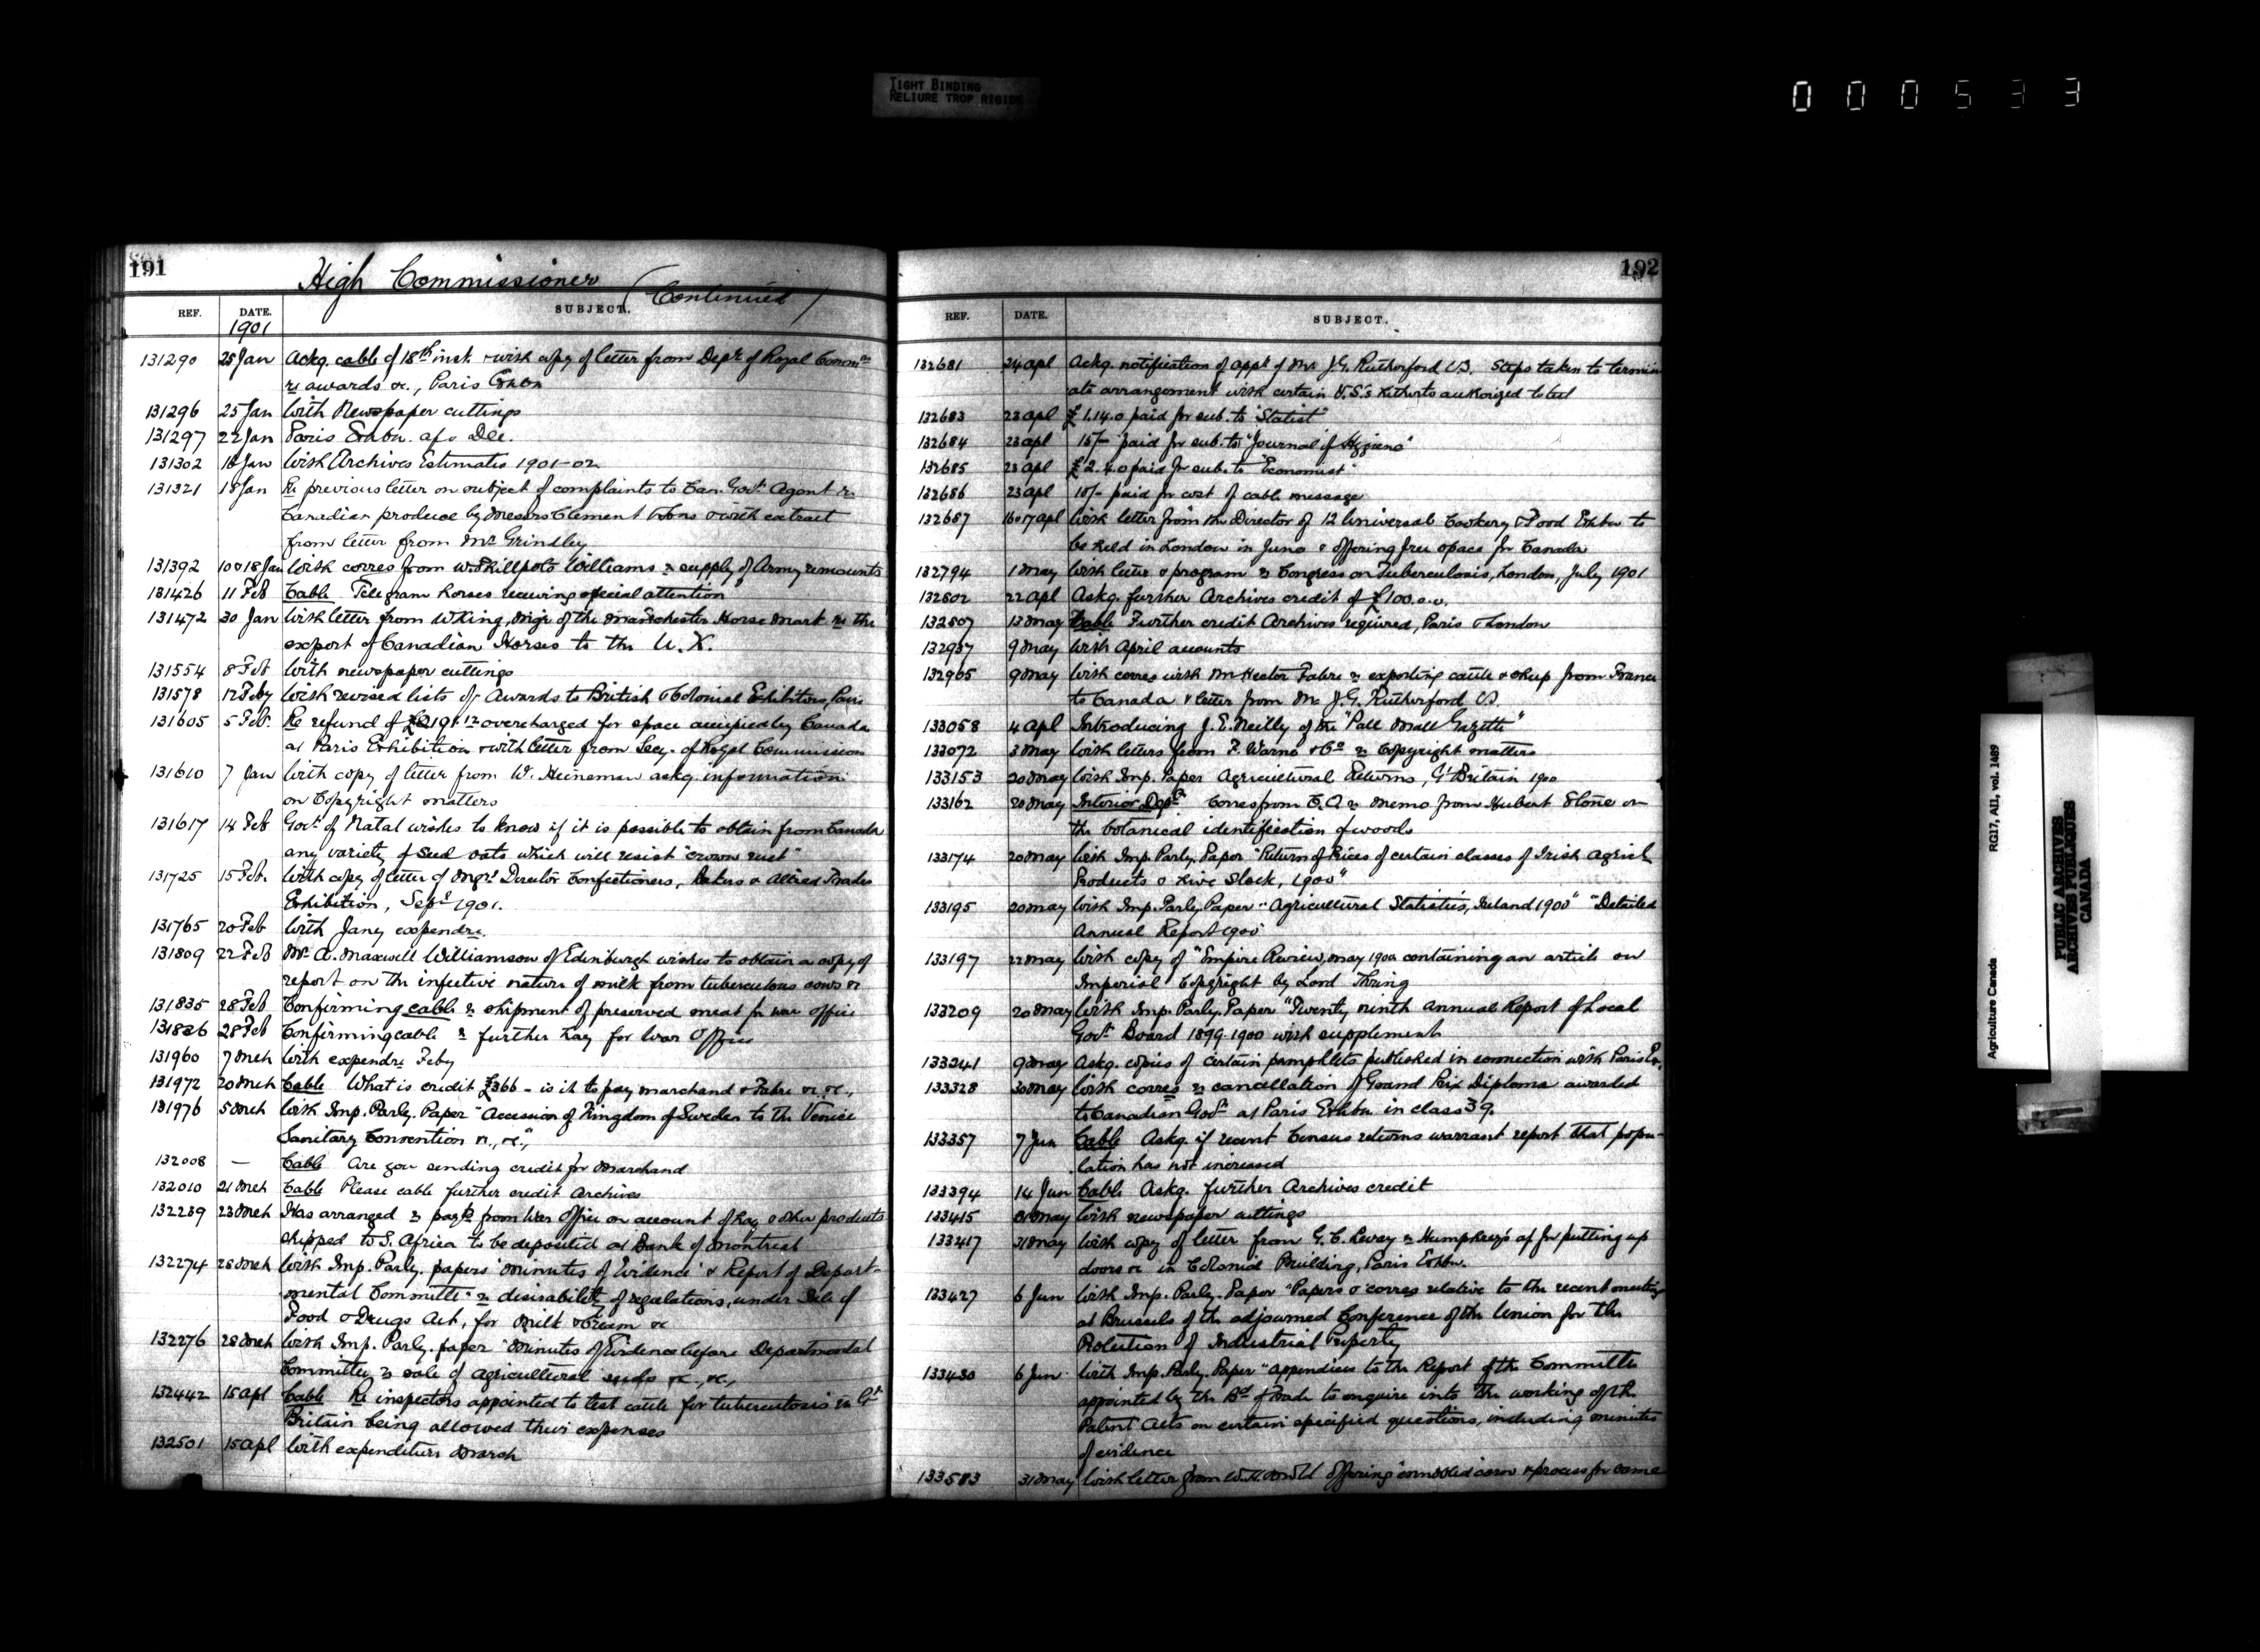 TIGHT BINDING
RELIURE TROP RIGIDE
000533
191
High Commissioner (Continued)
REF. DATE. SUBJECT.
1901
131290 25 Jan Ackg. cable of 18th inst. & with copy of letter from Dept. of Royal Commn
re awards &c., Paris Exbn
131296 25 Jan With Newspaper cuttings
131297 22 Jan Paris Exhbn. a/c Dec.
131302 18 Jan With Archives Estimates 1901-02
131321 18 Jan Re previous letter on subject of complaints to Can. Govt. Agent re
Canadian produce by Messrs Clement & Sons & with extract
from letter from Mr Grindley
131392 10 & 18 Jan With corres from W. Phillpotts Williams re supply of Army remounts
131426 11 Feb Cable Telegram horses receiving special attention
131472 30 Jan With letter from W King, Mngr of the Manchester Horse Mark re the
export of Canadian Horses to the U.K.
131554 8 Feb With newspaper cuttings
131578 12 Feby With revised lists of Awards to British & Colonial Exhibitors, Paris
131605 5 Feb. Re refund of overcharged for space occupied by Canada
at Paris Exhibition & with letter from Secy. of Royal Commission
131610 7 Jan With copy of letter from W. Heineman askg. information
on Copyright matters
131617 14 Feb Govt. of Natal wishes to know if it is possible to obtain from Canada
any variety of seed oats which will resist "crown rust"
131725 15 Feb. With copy of letter of Mngr. Director Confectioners, Bakers & Allied Trades
Exhibition, Sept 1901.
131765 20 Feb With Jany expendre
131809 22 Feb Mr A. Maxwell Williamson of Edinburgh wishes to obtain a copy of
report on the infective nature of milk from tuberculous cows &c
131835 28 Feb Confirming cable re shipment of preserved meat for war office
131836 28 Feb Confirming cable re further hay for War Office
131960 7 Mch With expendre Feby
131972 20 Mch Cable What is credit £366 - is it to pay Marchand & Fabre &c. &c.,
131976 5 Mch With Imp. Parly. Paper "Accession of Kingdom of Sweden to the Venice
Sanitary Convention &c., &c.",
132008 — Cable Are you sending credit for Marchand
132010 21 Mch Cable Please cable further credit Archives
132239 23 Mch Has arranged re paymt from War Office on account of hay & other products
shipped to S. Africa to be deposited at Bank of Montreal
132274 28 Mch With Imp. Parly. papers "Minutes of Evidence" & Report of Depart-
mental Committee" re desirability of regulations, under Sale of
Food & Drugs Act, for Milk & Cream &c
132276 28 Mch With Imp. Parly. paper "Minutes of Evidence before Departmental
Committee re sale of agricultural seeds &c., &c.,
132442 15 Apl Cable Re inspectors appointed to test cattle for tuberculosis in Gt.
Britain being allowed their expenses
132501 15 Apl With expenditure March
192
REF. DATE. SUBJECT.
132681 24 Apl Ackg. notification of appt. of Mr J.G. Rutherford V.S. Steps taken to termin
ate arrangement with certain V.S.'s hitherto authorized to test
132683 23 Apl £1.14.0 paid for sub. to "Statist"
132684 23 Apl 15/- paid for sub. to "Journal of Hygiene"
132685 23 Apl £2.4.0 paid for sub. to "Economist"
132686 23 Apl 10/- paid for cost of cable message
132687 16 & 17 Apl With letter from the Director of 12 Universal Cookery & Food Exhbn to
be held in London in June & offering free space for Canada
132794 1 May With letter & program re Congress on Tuberculosis, London, July 1901
132802 22 Apl Askg. further Archives credit of £100.0.0.
132807 13 May Cable Further credit Archives required, Paris & London
132937 9 May With April accounts
132965 9 May With corres with Mr Hector Fabre re exporting cattle & sheep from France
to Canada & letter from Mr J.G. Rutherford V.S.
133058 4 Apl Introducing J.E. Neilly of the "Pall Mall Gazette"
133072 3 May With letters from F. Warne & Co re Copyright matters
133153 20 May With Imp. Paper Agricultural Returns, Gt Britain 1900
133162 20 May Interior Dept. Corres from re memo from Hubert Stone on
the botanical identification of woods
133174 20 May With Imp. Parly. Paper "Return of Prices of certain classes of Irish Agricl
Products & Live Stock, 1900"
133195 20 May With Imp. Parly. Paper "Agricultural Statistics, Ireland 1900" "Detailed
Annual Report 1900
133197 22 May With copy of "Empire Review, May 1901 containing an article on
Imperial Copyright by Lord Thring
133209 20 May With Imp. Parly. Paper "Twenty ninth annual Report of Local
Govt. Board 1899-1900 with supplement
133241 9 May Askg. copies of certain pamphlets published in connection with Paris Ex.
133328 30 May With corres re cancellation of Grand Prix Diploma awarded
to Canadian Govt. at Paris Exhbn. in class 39.
133357 7 Jun Cable Askg. if recent Census returns warrant report that popu-
lation has not increased
133394 14 Jun Cable Askg. further Archives credit
133415 31 May With newspaper cuttings
133417 31 May With copy of letter from G.C. Levey re Humphreys a/c for putting up
doors &c in Colonial Building, Paris Exhbn.
133427 6 Jun With Imp. Parly. Paper "Papers & corres relative to the recent meeting
at Brussels of the adjourned Conference of the Union for the
Protection of Industrial Property
133430 6 Jun With Imp. Parly. Paper "Appendices to the Report of the Committee
appointed by the Bd of Trade to enquire into the working of the
Patent Acts on certain specified questions, including minutes
of evidence
133583 31 May With letter from offering & process for same
Agriculture Canada RG17, AII, vol. 1489
PUBLIC ARCHIVES
ARCHIVES PUBLIQUES
CANADA